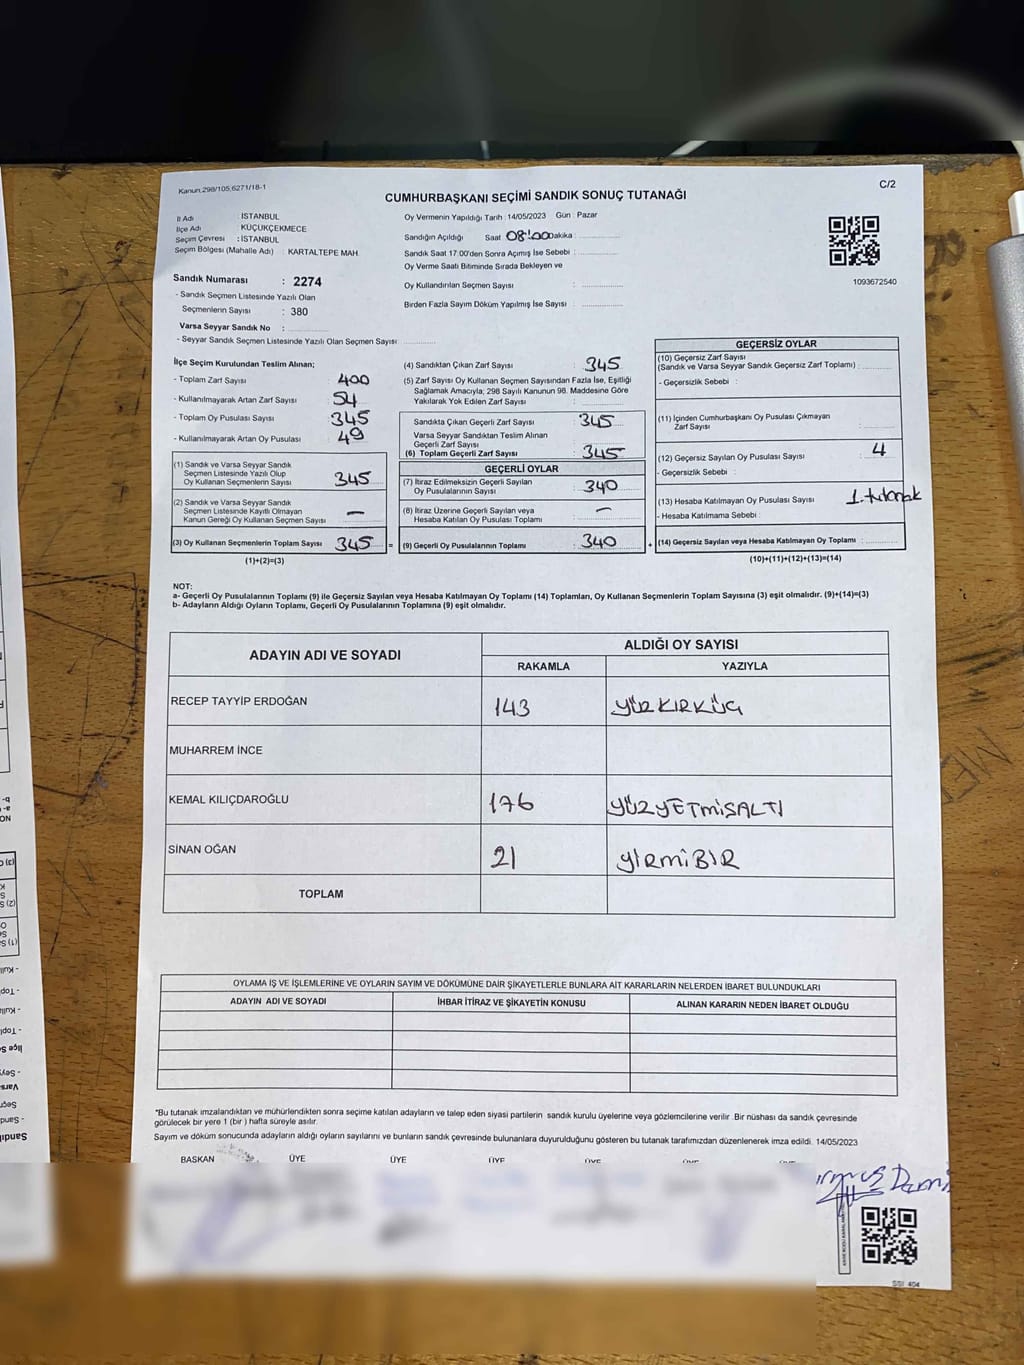 Kanun.298/105,6271/18-1
C/2
CUMHURBAŞKANI SEÇİMİ SANDIK SONUÇ TUTANAĞI
İl Adı : İSTANBUL
İlçe Adı : KÜÇÜKÇEKMECE
Seçim Çevresi : İSTANBUL
Seçim Bölgesi (Mahalle Adı) : KARTALTEPE MAH.
Oy Vermenin Yapıldığı Tarih : 14/05/2023 Gün : Pazar
Sandığın Açıldığı Saat 08:00 Dakika :
Sandık Saat 17:00'den Sonra Açımış İse Sebebi :
Oy Verme Saati Bitiminde Sırada Bekleyen ve
Oy Kullandırılan Seçmen Sayısı :
Birden Fazla Sayım Döküm Yapılmış İse Sayısı :
1093672540
Sandık Numarası : 2274
- Sandık Seçmen Listesinde Yazılı Olan
Seçmenlerin Sayısı : 380
Varsa Seyyar Sandık No :
- Seyyar Sandık Seçmen Listesinde Yazılı Olan Seçmen Sayısı :
İlçe Seçim Kurulundan Teslim Alınan;
- Toplam Zarf Sayısı : 400
- Kullanılmayarak Artan Zarf Sayısı : 54
- Toplam Oy Pusulası Sayısı : 345
- Kullanılmayarak Artan Oy Pusulası : 49
(1) Sandık ve Varsa Seyyar Sandık
Seçmen Listesinde Yazılı Olup
Oy Kullanan Seçmenlerin Sayısı : 345
(2) Sandık ve Varsa Seyyar Sandık
Seçmen Listesinde Kayıtlı Olmayan
Kanun Gereği Oy Kullanan Seçmen Sayısı : —
(3) Oy Kullanan Seçmenlerin Toplam Sayısı : 345 =
(1)+(2)=(3)
(4) Sandıktan Çıkan Zarf Sayısı : 345
(5) Zarf Sayısı Oy Kullanan Seçmen Sayısından Fazla İse, Eşitliği
Sağlamak Amacıyla; 298 Sayılı Kanunun 98. Maddesine Göre
Yakılarak Yok Edilen Zarf Sayısı :
Sandıkta Çıkan Geçerli Zarf Sayısı : 345
Varsa Seyyar Sandıktan Teslim Alınan
Geçerli Zarf Sayısı :
(6) Toplam Geçerli Zarf Sayısı : 345
GEÇERLİ OYLAR
(7) İtiraz Edilmeksizin Geçerli Sayılan
Oy Pusulalarının Sayısı : 340
(8) İtiraz Üzerine Geçerli Sayılan veya
Hesaba Katılan Oy Pusulası Toplamı : —
(9) Geçerli Oy Pusulalarının Toplamı : 340 +
GEÇERSİZ OYLAR
(10) Geçersiz Zarf Sayısı
(Sandık ve Varsa Seyyar Sandık Geçersiz Zarf Toplamı) :
- Geçersizlik Sebebi :
(11) İçinden Cumhurbaşkanı Oy Pusulası Çıkmayan
Zarf Sayısı :
(12) Geçersiz Sayılan Oy Pusulası Sayısı : 4
- Geçersizlik Sebebi :
(13) Hesaba Katılmayan Oy Pusulası Sayısı : 1. tutanak
- Hesaba Katılmama Sebebi :
(14) Geçersiz Sayılan veya Hesaba Katılmayan Oy Toplamı :
(10)+(11)+(12)+(13)=(14)
NOT:
a- Geçerli Oy Pusulalarının Toplamı (9) ile Geçersiz Sayılan veya Hesaba Katılmayan Oy Toplamı (14) Toplamları, Oy Kullanan Seçmenlerin Toplam Sayısına (3) eşit olmalıdır. (9)+(14)=(3)
b- Adayların Aldığı Oyların Toplamı, Geçerli Oy Pusulalarının Toplamına (9) eşit olmalıdır.
ADAYIN ADI VE SOYADI
ALDIĞI OY SAYISI
RAKAMLA YAZIYLA
RECEP TAYYİP ERDOĞAN 143 YÜZ KIRK ÜÇ
MUHARREM İNCE
KEMAL KILIÇDAROĞLU 176 YÜZYETMİSALTI
SİNAN OĞAN 21 YİRMİ BİR
TOPLAM
OYLAMA İŞ VE İŞLEMLERİNE VE OYLARIN SAYIM VE DÖKÜMÜNE DAİR ŞİKAYETLERLE BUNLARA AİT KARARLARIN NELERDEN İBARET BULUNDUKLARI
ADAYIN ADI VE SOYADI İHBAR İTİRAZ VE ŞİKAYETİN KONUSU ALINAN KARARIN NEDEN İBARET OLDUĞU
*Bu tutanak imzalandıktan ve mühürlendikten sonra seçime katılan adayların ve talep eden siyasi partilerin sandık kurulu üyelerine veya gözlemcilerine verilir .Bir nüshası da sandık çevresinde
görülecek bir yere 1 (bir ) hafta süreyle asılır.
Sayım ve döküm sonucunda adayların aldığı oyların sayılarını ve bunların sandık çevresinde bulunanlara duyurulduğunu gösteren bu tutanak tarafımızdan düzenlenerek imza edildi. 14/05/2023
BAŞKAN ÜYE ÜYE ÜYE ÜYE